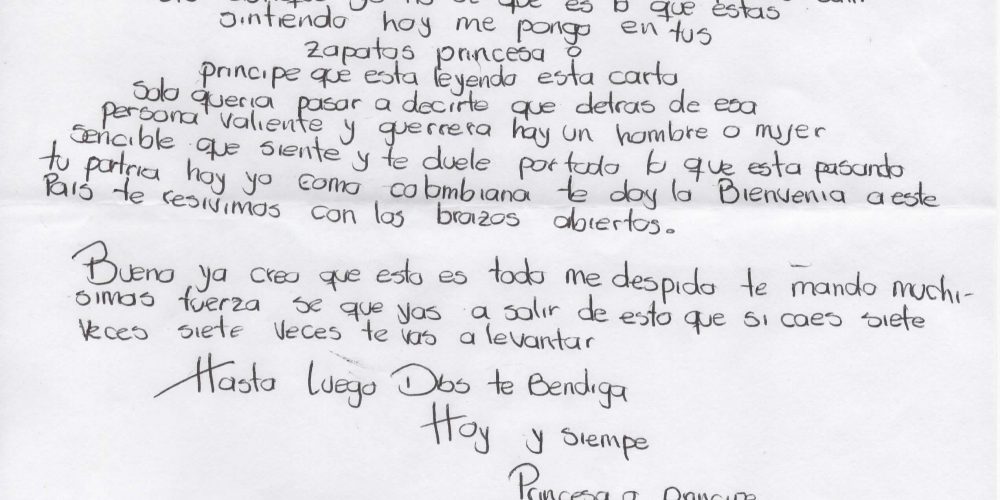 yo no se que es lo que estas
sintiendo hoy me pongo en tus
zapatos princesa o
principe que esta leyendo esta carta
Solo queria pasar a decirte que detras de esa
persona valiente y guerrera hay un hombre o mujer
sencible que siente y te duele por todo lo que esta pasando
tu partria hoy yo como colombiana te doy la Bienvenia a este
Pais te resivimos con los braizos abiertos.
Bueno ya creo que esto es todo me despido te mando muchi-
simas fuerza se que vas a salir de esto que si caes siete
veces siete veces te vas a levantar
Hasta luego Dios te Bendiga
Hoy y siempe
Princesa o principe